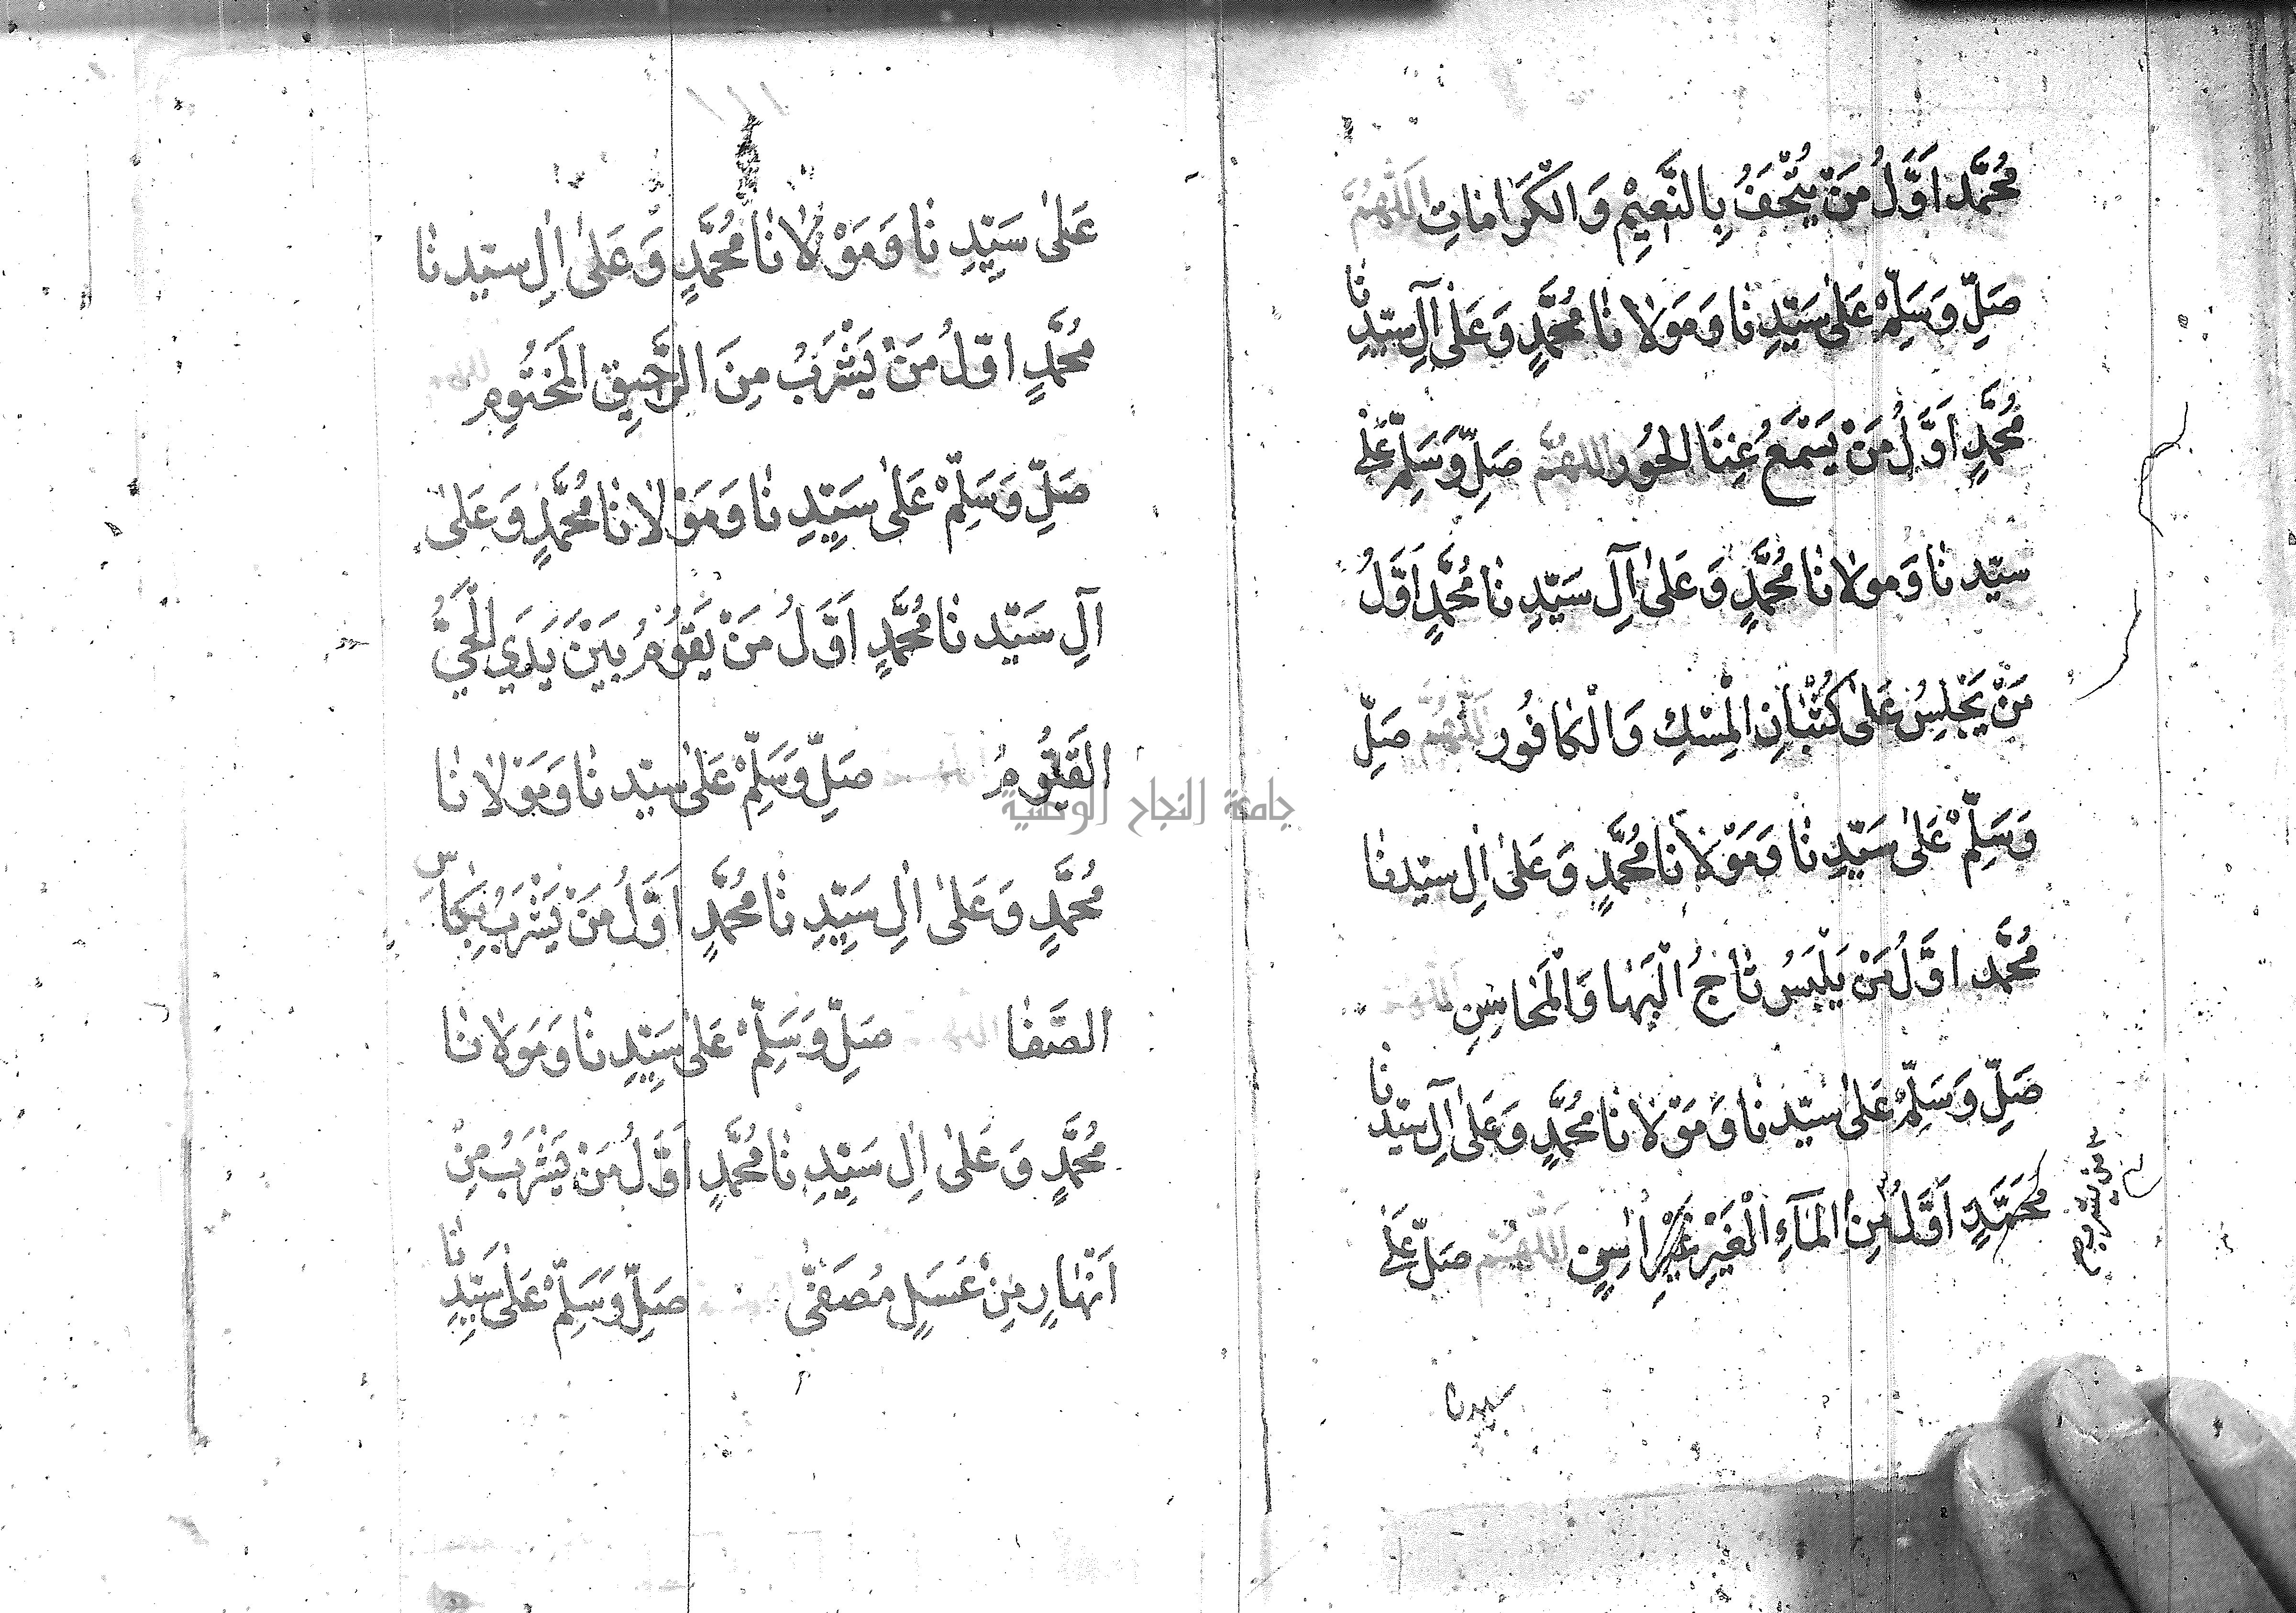 مُحَمَّد اَوَّلُ مَنْ يُتْحَفُ بِالنَّعِيْمِ وَالْكَرَامَاتِ اَللّٰهُمَّ
صَلِّ وَسَلِّمْ عَلٰى سَيِّدِنَا وَمَوْلَانَا مُحَمَّدٍ وَعَلٰى آلِ سَيِّدِنَا
مُحَمَّدٍ اَوَّلُ مَنْ يَسْمَعُ غِنَا الحُور اللهُمَّ صَلِّ وَسَلِّمْ عَلٰى
سيّدنا وَمولانا مُحَمَّدٍ وَعَلٰى آلِ سَيّدِنا مُحَمَّدٍ اَوَّلُ
مَنْ يَجْلِسُ عَلٰى كُثْبَانِ الْمِسْكِ وَالْكَافُور اَللّٰهُمَّ صَلِّ
وَسَلِّمْ عَلٰى سَيّدِنَا وَمَوْلَانَا مُحَمَّدٍ وَعَلٰى اٰلِ سيّدنا
مُحَمَّد اوَّلُ مَنْ يَلْبَسُ تَاجُ الْبَهَا وَالْمَحَاسِنِ اَللّٰهُمَّ
صَلِّ وَسَلِّمْ عَلٰى سيّدنَا وَمَوْلَانَا مُحَمَّدٍ وَعَلٰى آلِ سيّدنا
مُحَمَّدٍ اَوَّلُ مِنَ الْمَآءِ الْغَيْرِ غَيْرِ اٰسِنٍ اَللّٰهُمَّ صَلّ عَلٰى
من يشرب صح
سيدنا
عَلٰى سَيّدِنَا وَمَوْلَانَا مُحَمَّدٍ وَّعَلٰى اٰلِ سيّدنا
مُحَمَّدٍ اوّلُ مَنْ يَشْرَبُ مِنَ الرَّحِيقِ المَخْتُومِ
صَلِّ وَسَلِّمْ عَلٰى سَيّدِنَا وَمَوْلَانَا مُحَمَّدٍ وَعَلٰى
آلِ سَيّدنا مُحَمَّدٍ اَوَّلُ مَنْ يَقُومُ بَيْنَ يَدَيِ الْحَيِّ
القَيُّومُ صَلِّ وَسَلِّمْ عَلٰى سيّدنَا وَمَوْلَانَا
مُحَمَّدٍ وَعَلٰى اٰلِ سَيّدِنَا مُحَمَّدٍ اَوَّلُ مَنْ يَشْرَبُ بِكَاسِ
الصَّفَا صَلِّ وَسَلِّمْ عَلٰى سَيّدِنَا وَمَوْلَانَا
مُحَمَّدٍ وَعَلٰى اٰلِ سَيّدِنَا مُحَمَّدٍ اَوَّلُ مَنْ يَشْرَبُ مِنْ
اَنْهَارٍ مِنْ عَسَلٍ مُصَفّٰى صَلِّ وَسَلِّمْ عَلٰى سَيّدِنَا
جامعة النجاح الوطنية